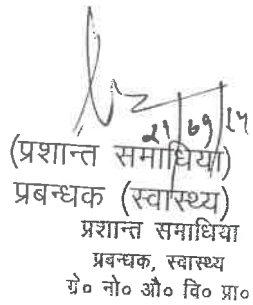 (प्रशान्त समाधिया)
प्रबन्धक (स्वास्थ्य)
प्रशान्त समाधिया
प्रबन्धक, स्वास्थ्य
ग्रे० नो० औ० वि० प्रा०